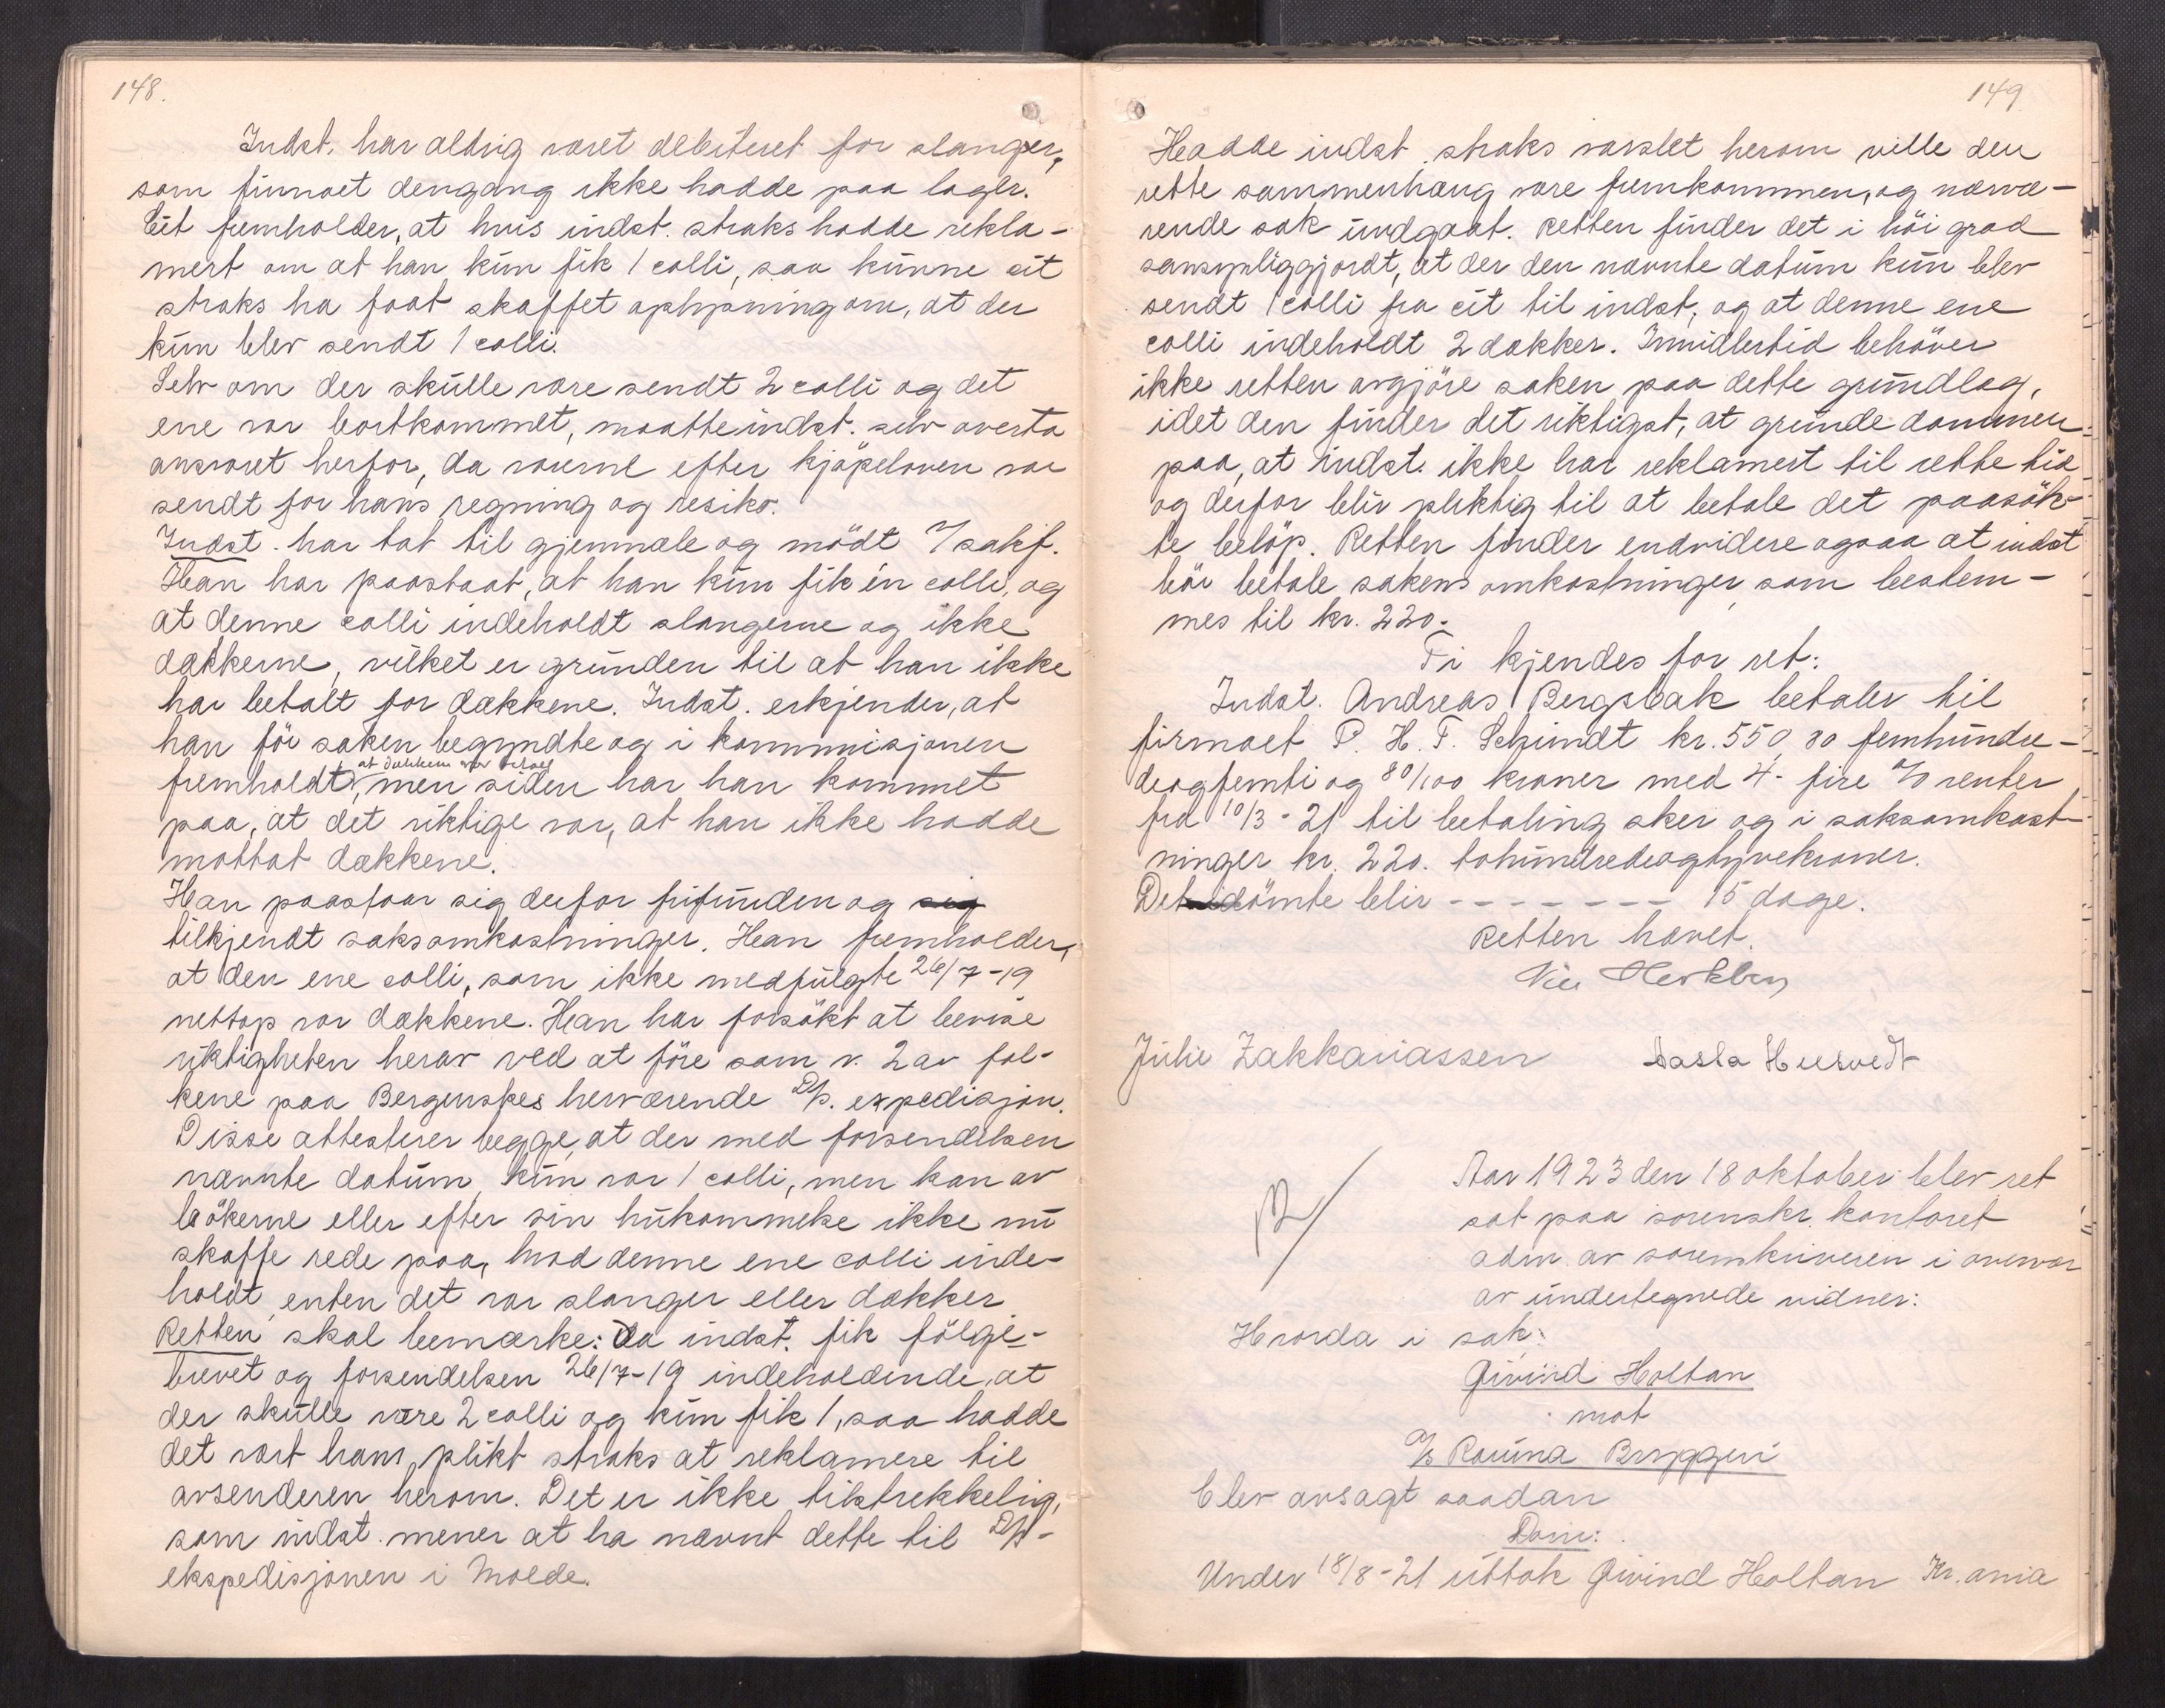 148.
Indst. har aldrig været debiteret for slanger,
som firmaet dengang ikke hadde paa lager.
Cit fremholder, at hvis indst. straks hadde rekla-
mert om at han kun fik 1 colli, saa kunne cit
straks ha faat skaffet oplysning om, at der
kun blev sendt 1 colli.
Selv om der skulle være sendt 2 colli og det
ene var bortkommet, maatte indst. selv overta
ansvaret herfor, da varerne efter kjöpeloven var
sendt for hans regning og resiko.
Indst. har tat til gjenmæle og mödt m/sakf.
Han har paastaat, at han kun fik én colli, og
at denne colli indeholdt slangerne og ikke
dækkerne, vilket er grunden til at han ikke
har betalt for dækkene. Indst. erkjender, at
han för saken begyndte og i kommisjonen
fremholdt, at dækkene var
men siden har han kommet
paa, at det riktige var, at han ikke hadde
mottat dækkene.
Han paastaar sig derfor frifunden og sig
tilkjendt saksomkostninger. Han fremholder,
at den ene colli, som ikke medfulgte 26/7-19
nettop var dækkene. Han har forsökt at bevise
riktigheten herav ved at före som v. 2 av fol-
kene paa Bergenskes herværende D/s. expedisjon.
Disse attesterer begge, at der med forsendelsen
nævnte datum, kun var 1 colli, men kan av
bökerne eller efter sin hukommelse ikke nu
skaffe rede paa, hvad denne ene colli inde-
holdt, enten det var slanger eller dækker
Retten skal bemærke: Da indst. fik følge-
brevet og forsendelsen 26/7-19 indeholdende, at
der skulle være 2 colli og kun fik 1, saa hadde
det vært hans plikt straks at reklamere til
avsenderen herom. Det er ikke tilstrekkelig,
som indst. mener at ha nævnt dette til D/s-
ekspedisjonen i Molde.
149.
Hadde indst. straks varslet herom ville den
rette sammenhæng være fremkommen, og nærvæ-
rende sak undgaat. Retten finder det i höi grad
sansynliggjordt, at der den nævnte datum kun blev
sendt 1 colli fra cit til indst, og at denne ene
colli indeholdt 2 dækker. Imidlertid behöver
ikke retten avgjöre saken paa dette grundlag,
idet den finder det riktigst, at grunde dommen
paa, at indst. ikke har reklamert til rette tid
og derfor blir pliktig til at betale det paasök-
te belöp. Retten finder endvidere ogsaa at indst
bör betale sakens omkostninger, som bestem-
mes til kr. 220.-
Ti kjendes for ret:
Indst. Andreas Bergsbak betaler til
firmaet P. H. F. Schmidt kr. 550,80 femhundre-
deogfemti og 80/100 kroner med 4- fire % renter
fra 10/3-21 til betaling sker og i saksomkost-
ninger kr. 220. tohundredeogtyvekroner.
Det idömte blir - - - - - - - 15 dage.
Retten hævet.
Julie Zakkariassen Aasta
Aar 1923 den 18 oktober blev ret
sat paa sorenskr. kontoret
adm. av sorenskriveren i overvær
av undertegnede vidner:
Hvorda i sak:
Øivind Holtan
mot
A/S Rauma Bryggeri
blev avsagt saadan
Dom:
Under 18/8-21 uttok Øivind Holtan Kr.ania